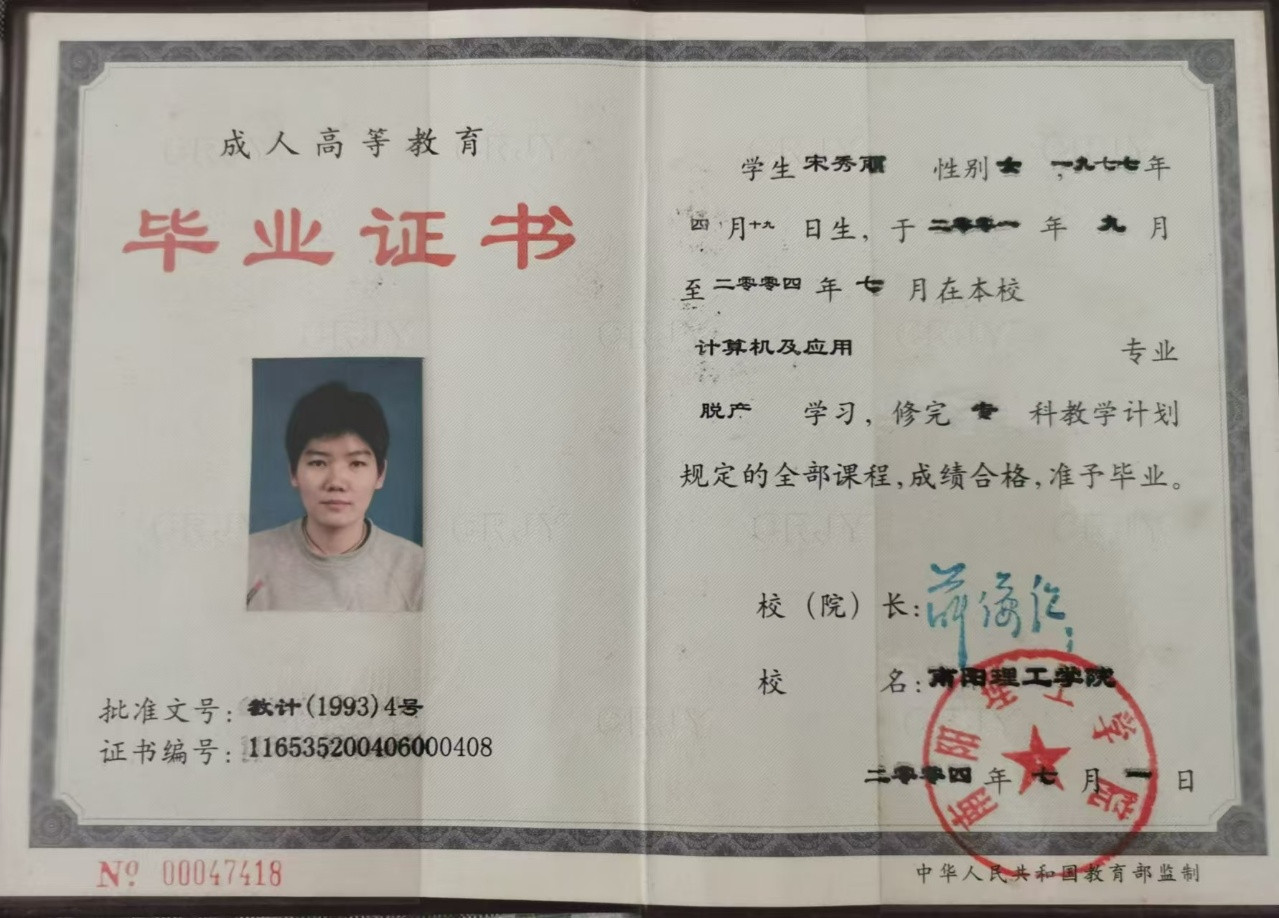 成人高等教育
毕业证书
批准文号：教计(1993)4号
证书编号：116535200406000408
Nº 00047418
学生 宋秀丽 性别 女，一九七七年
四月十九日生，于二零零一年九月
至二零零四年七月在本校
计算机及应用 专业
脱产 学习，修完 专 科教学计划
规定的全部课程，成绩合格，准予毕业。
校（院）长：
校 名：南阳理工学院
南阳理工学院
二零零四年七月一日
中华人民共和国教育部监制